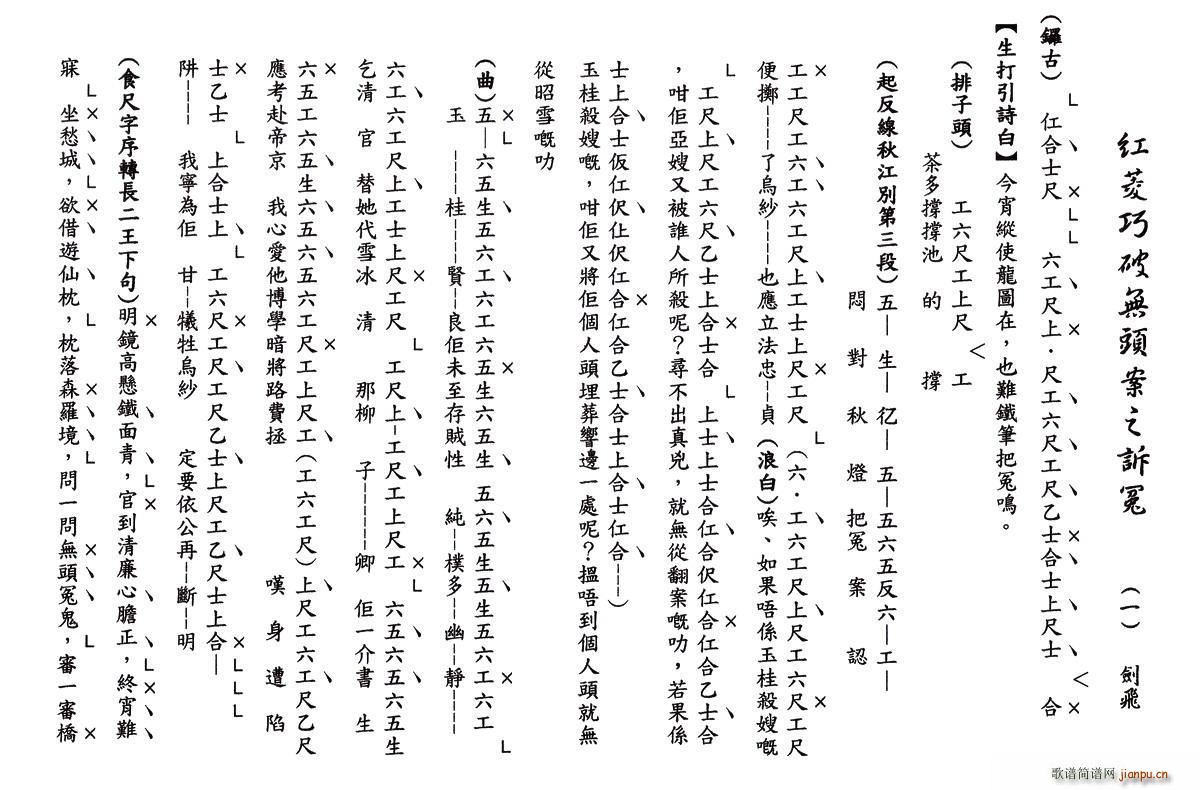 紅菱巧破無頭案之訴冤 （一） 劍飛
（鑼古） 仁合士尺 六工尺上．尺工六尺工尺乙士合士上尺士 合
【生打引詩白】今宵縱使龍圖在，也難鐵筆把冤鳴。
（排子頭） 工六尺工上尺 工
茶多撐撐池 的 撐
（起反線秋江別第三段）五—生—伬—五—五六五反六—工—
悶 對 秋 燈 把冤 案 認
工工尺工六工六工尺上工士上尺工尺（六．工六工尺上尺工六尺工尺
便擲---了烏紗---也應立法忠--貞（浪白）唉、如果唔係玉桂殺嫂嘅
工尺上尺工六尺乙士上合士合 上士上士合仁合伬仁合仁合乙士合
，咁佢亞嫂又被誰人所殺呢？尋不出真兇，就無從翻案嘅叻，若果係
士上合士仮仁伬仩伬仁合仜合乙士合士上合士仁合---）
玉桂殺嫂嘅，咁佢又將佢個人頭埋葬響邊一處呢？搵唔到個人頭就無
從昭雪嘅叻
（曲）五—六五生五六工六工六五生六五生 五六五生五生五六工六工
玉 ----桂----賢--良佢未至存賊性 純--樸多--幽--靜----
六工六工尺上工士上尺工尺 工尺上–工尺工上尺工 六五六五六五生
乞清 官 替她代雪冰 清 那柳 子-------卿 佢一介書 生
六五工六五生六五六五六工尺工上尺工（工六工尺）上尺工六工尺乙尺
應考赴帝京 我心愛他博學暗將路費拯 嘆 身 遭 陷
士乙士 上合士上 工六尺工尺工尺乙士上尺工乙尺士上合—
阱---- 我寧為佢 甘--犧牲烏紗 定要依公再--斷--明
（食尺字序轉長二王下句）明鏡高懸鐵面青，官到清廉心膽正，終宵難
寐 坐愁城，欲借遊仙枕，枕落森羅境，問一問無頭冤鬼，審一審橋
歌谱简谱网 jianpu.cn